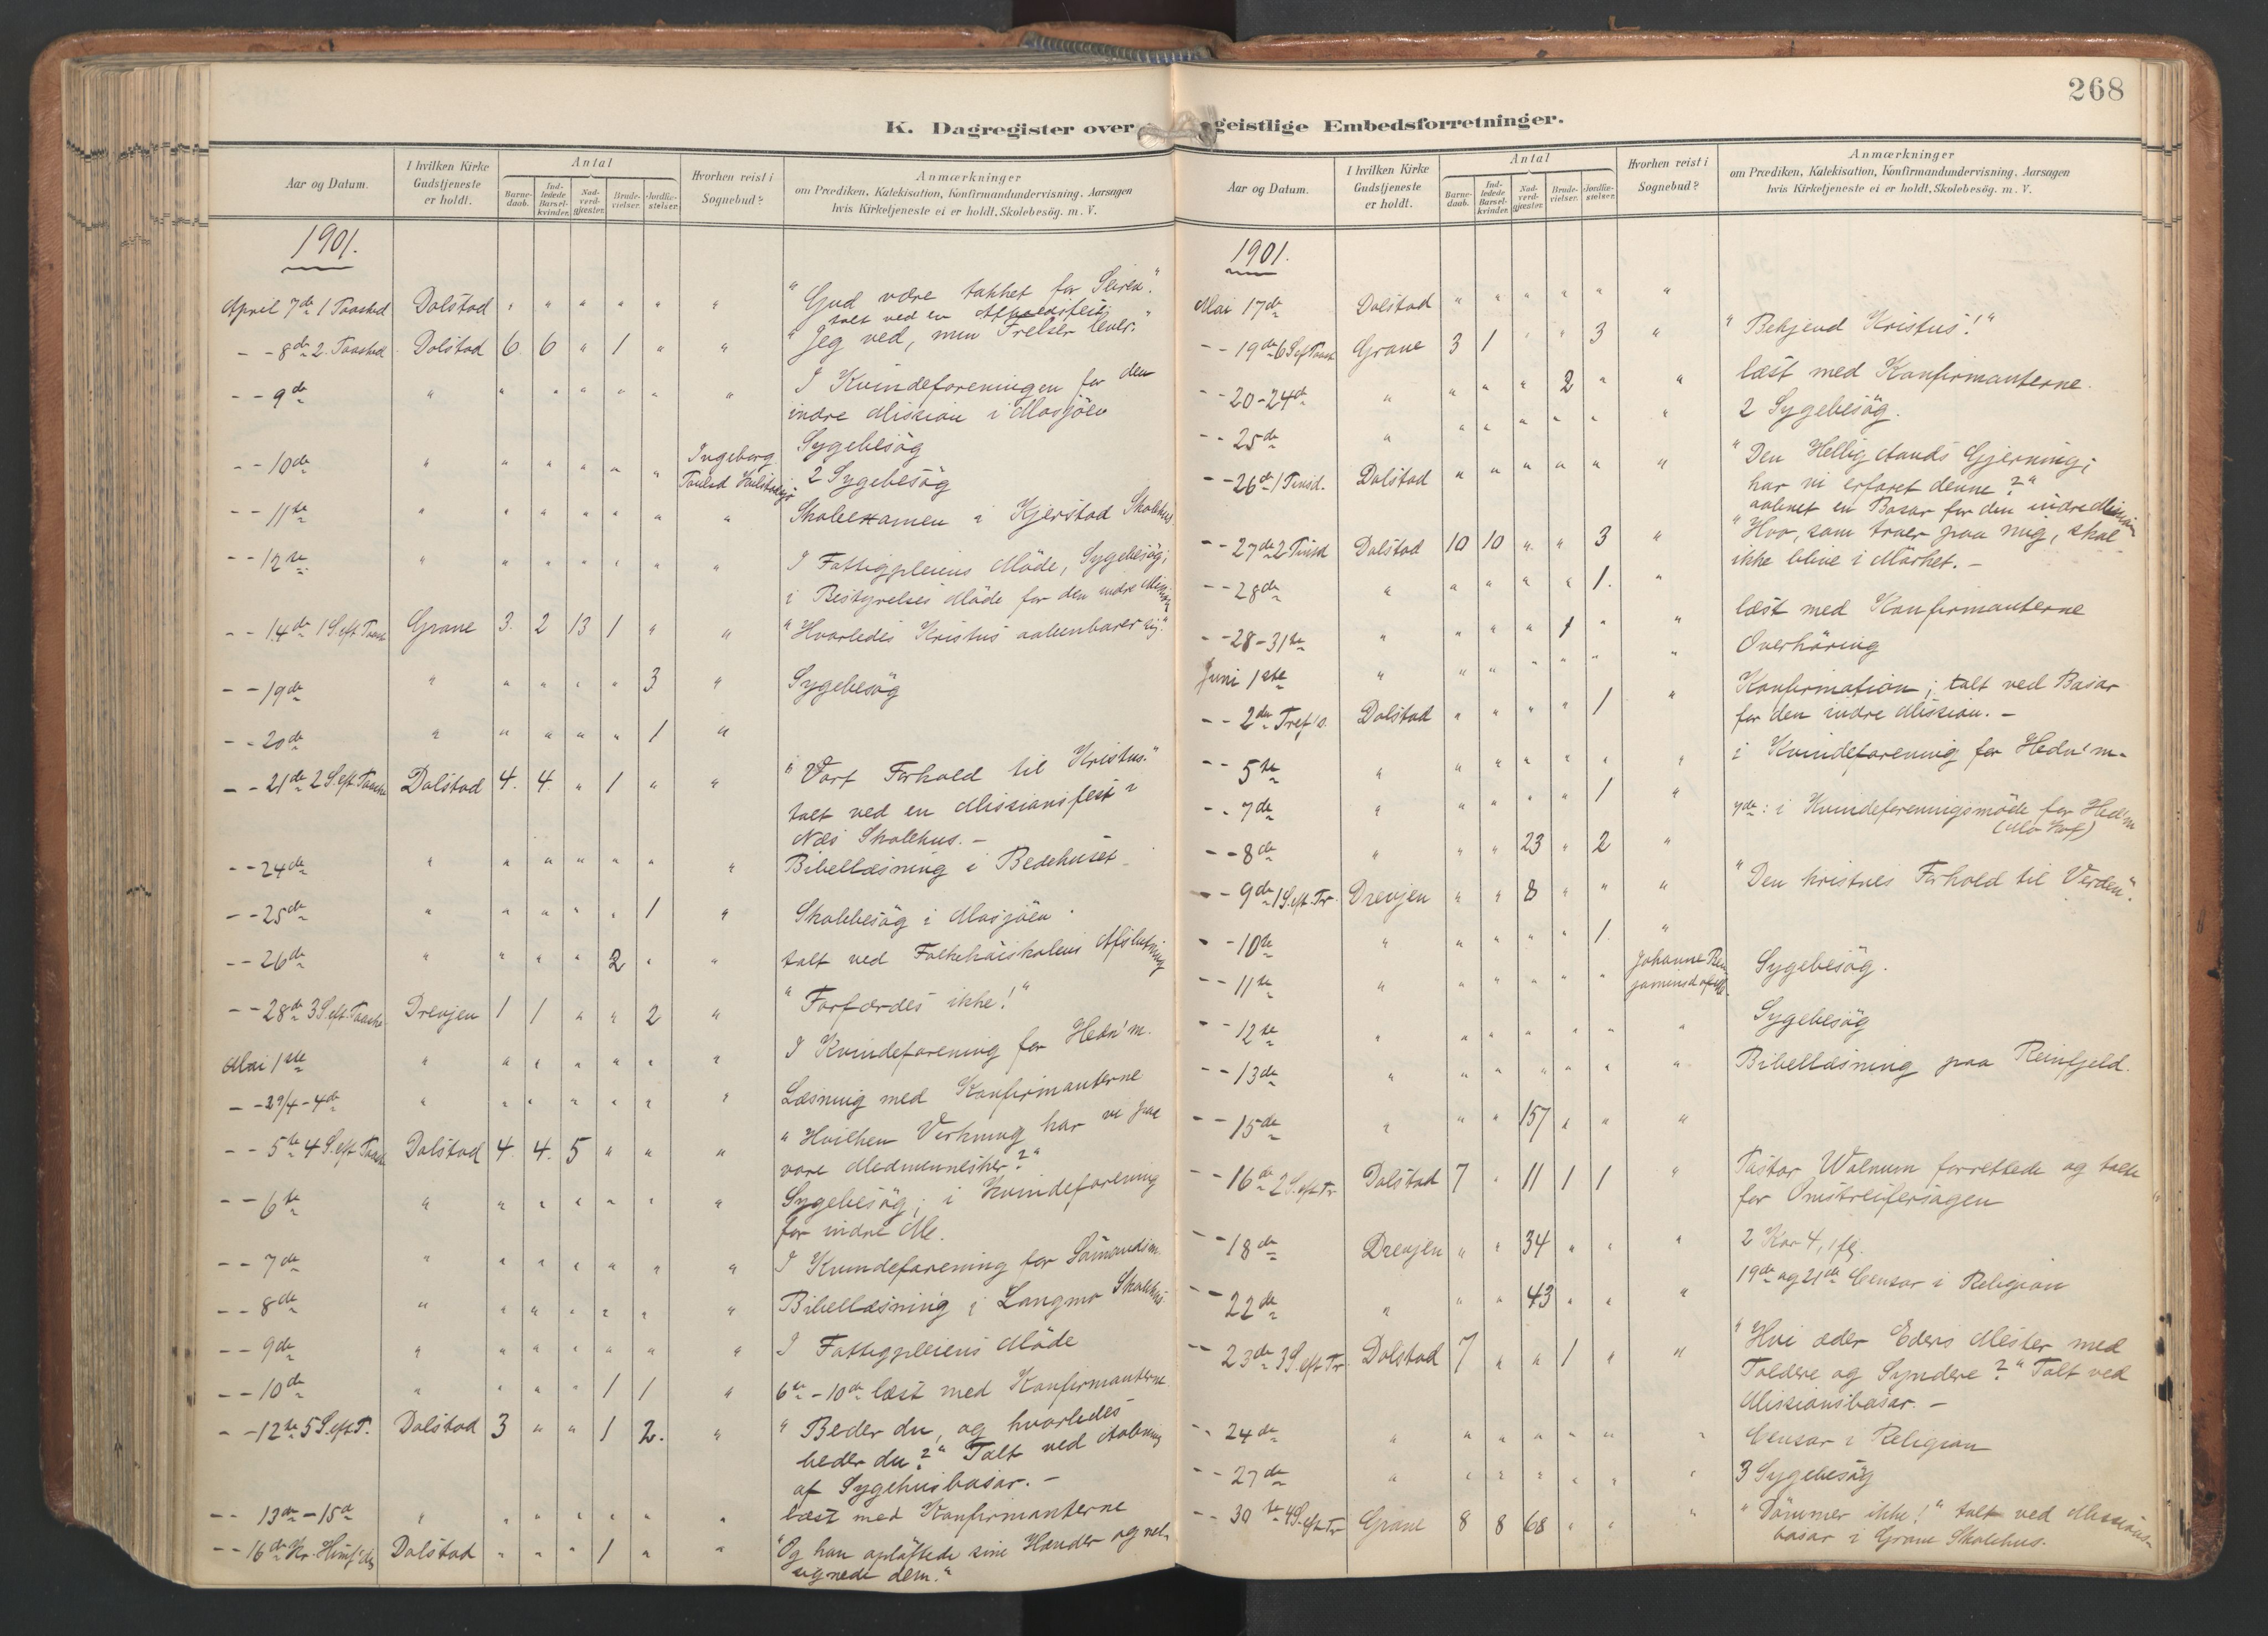 268
K. Dagregister over geistlige Embedsforretninger.
Aar og Datum. I hvilken Kirke Gudstjeneste er holdt. Antal Barne-daab. Ind-ledede Barsel-kvinder. Nad-verd-gjæster. Brude-vielser. Jordfæ-stelser. Hvorhen reist i Sognebud? Anmærkninger om Prædiken, Katekisation, Konfirmandundervisning. Aarsagen hvis Kirketjeneste ei er holdt. Skolebesøg. m. V.
1901.
April 7de 1 Paasked Dolstad " " " " " " "Gud være takket for Seiren".
talt ved en
- - 8de 2. Paasked Dolstad 6 6 " 1 " " "Jeg ved, min Frelser lever."
- - 9de " " " " " " " I Kvindeforeningen for den
indre Mission i Mosjøen
- - 10de " " " " " " Ingeborg Sygebesøg
2 Sygebesøg
- - 11te " " " " " " " Skoleexamen i Kjerstad Skolehus
- - 12te " " " " " " " I Fattigpleiens Møde, Sygebesøg;
i Bestyrelses Møde for den indre Mission
- - 14de 1 S. eft Paaske Grane 3. 2 13 1 " " "Hvorledes Kristus aabenbarer sig".
- - 19de " " " " " 3 " Sygebesøg
- - 20de " " " " " 1 "
- - 21de 2 S. eft. Paaske Dolstad 4. 4. " 1 " " "Vort Forhold til Kristus."
talt ved en Missionsfest i
Næs Skolehus. -
- - 24de " " " " " " " Bibellæsning i Bedehuset
- - 25de " " " " " 1 " Skolebesøg i Mosjøen.
- - 26de " " " " 2 " " talt ved Folkehøiskolens Afslutning
- - 28de 3 S. eft. Paaske Drevjen 1 1 " " 2 " "Forfærdes ikke!"
Mai 1ste " " " " " " " I Kvindeforening for Hedn'm.
- - 29/4 - 4de " " " " " " " Læsning med Konfirmanterne
- - 5te 4 S. eft Paaske Dolstad 4. 4. 5 " " " "Hvilken Virkning har vi paa
vore Medmennesker?"
- - 6te " " " " " " " Sygebesøg; i Kvindeforening
for indre M.
- - 7de " " " " " " " I Kvindeforening for Sømandsm.
- - 8de " " " " " " " Bibellæsning i Langmo Skolehus
- - 9de " " " " " " " I Fattigpleiens Møde
- - 10de " " " " 1 1 " 6te - 10de læst med Konfirmanterne
- - 12te 5 S. eft P. Dolstad 3 " " 1 2. " "Beder du, og hvorledes
beder du?" Talt ved Aabning
af Sygehusbasar. -
- - 13de - 15de " " " " " " " læst med Konfirmanterne
- - 16de Kr. Himf'dg Dolstad " " " 1 " " "Og han opløftede sine Hænder og vel-
signede dem."
Aar og Datum. I hvilken Kirke Gudstjeneste er holdt. Antal Barne-daab. Ind-ledede Barsel-kvinder. Nad-verd-gjæster. Brude-vielser. Jordfæ-stelser. Hvorhen reist i Sognebud? Anmærkninger om Prædiken, Katekisation, Konfirmandundervisning. Aarsagen hvis Kirketjeneste ei er holdt. Skolebesøg. m. V.
1901.
Mai 17de Dolstad " " " " " "
- - 19de 6 S. ef Paask Grane 3 1 " " 3 " "Bekjend Kristus!"
- - 20 - 24de " " " " 2 " " læst med Konfirmanterne.
- - 25de " " " " " " " 2 Sygebesøg.
- - 26de 1 Pinsd. Dolstad " " " " " " "Den Hellig Aands Gjerning;
har vi erfaret denne?"
aabnet en Basar for den indre Mission
- - 27de 2 Pinsd Dolstad 10 10 " " 3 " "Hvo, som troer paa mig, skal
ikke blive i Mørket. -
- - 28de " " " " " 1. "
- - 28 - 31te " " " " 1 " " læst med Konfirmanterne
Juni 1ste " " " " " " " Overhøring
- - 2den Tref's. Dolstad " " " " 1 " Konfirmation; talt ved Basar
for den indre Mission. -
- - 5te " " " " " " " i Kvindeforening for Hedn'm.
- - 7de " " " " " 1 " 7de: i Kvindeforeningsmøde for Hedn'm
- - 8de " " " 23 " 2 "
- - 9de 1 S. eft. Tr. Drevjen " " 8 " " " "Den kristnes Forhold til Verden".
- - 10de " " " " " 1. "
- - 11te " " " " " " Johanne Sygebesøg.
- - 12te " " " " " " " Sygebesøg
- - 13de " " " " " " " Bibellæsning paa Reinfjeld.
- - 15de " " " 157 " " "
- - 16de 2 S. eft Tr Dolstad 7 " 11 1 1 " Pastor Walnum forrettede og talte
for Omstreifersagen
- - 18de Drevjen " " 34 " " " 2 Kor 4, 1 flg.
19de og 21de Censor i Religion
- - 22de " " " 43 " " "
- - 23de 3 S. eft Tr. Dolstad 7 " " 1 " " "Hvi æder Eders Mester med
Toldere og Syndere?" Talt ved
Missionsbasar. -
- - 24de " " " " " " " Censor i Religion
- - 27de " " " " " " " 3 Sygebesøg
- - 30te 4 S. eft Tr Grane 8 8 68 " " " "Dømmer ikke!" talt ved Missions-
basar i Grane Skolehus.